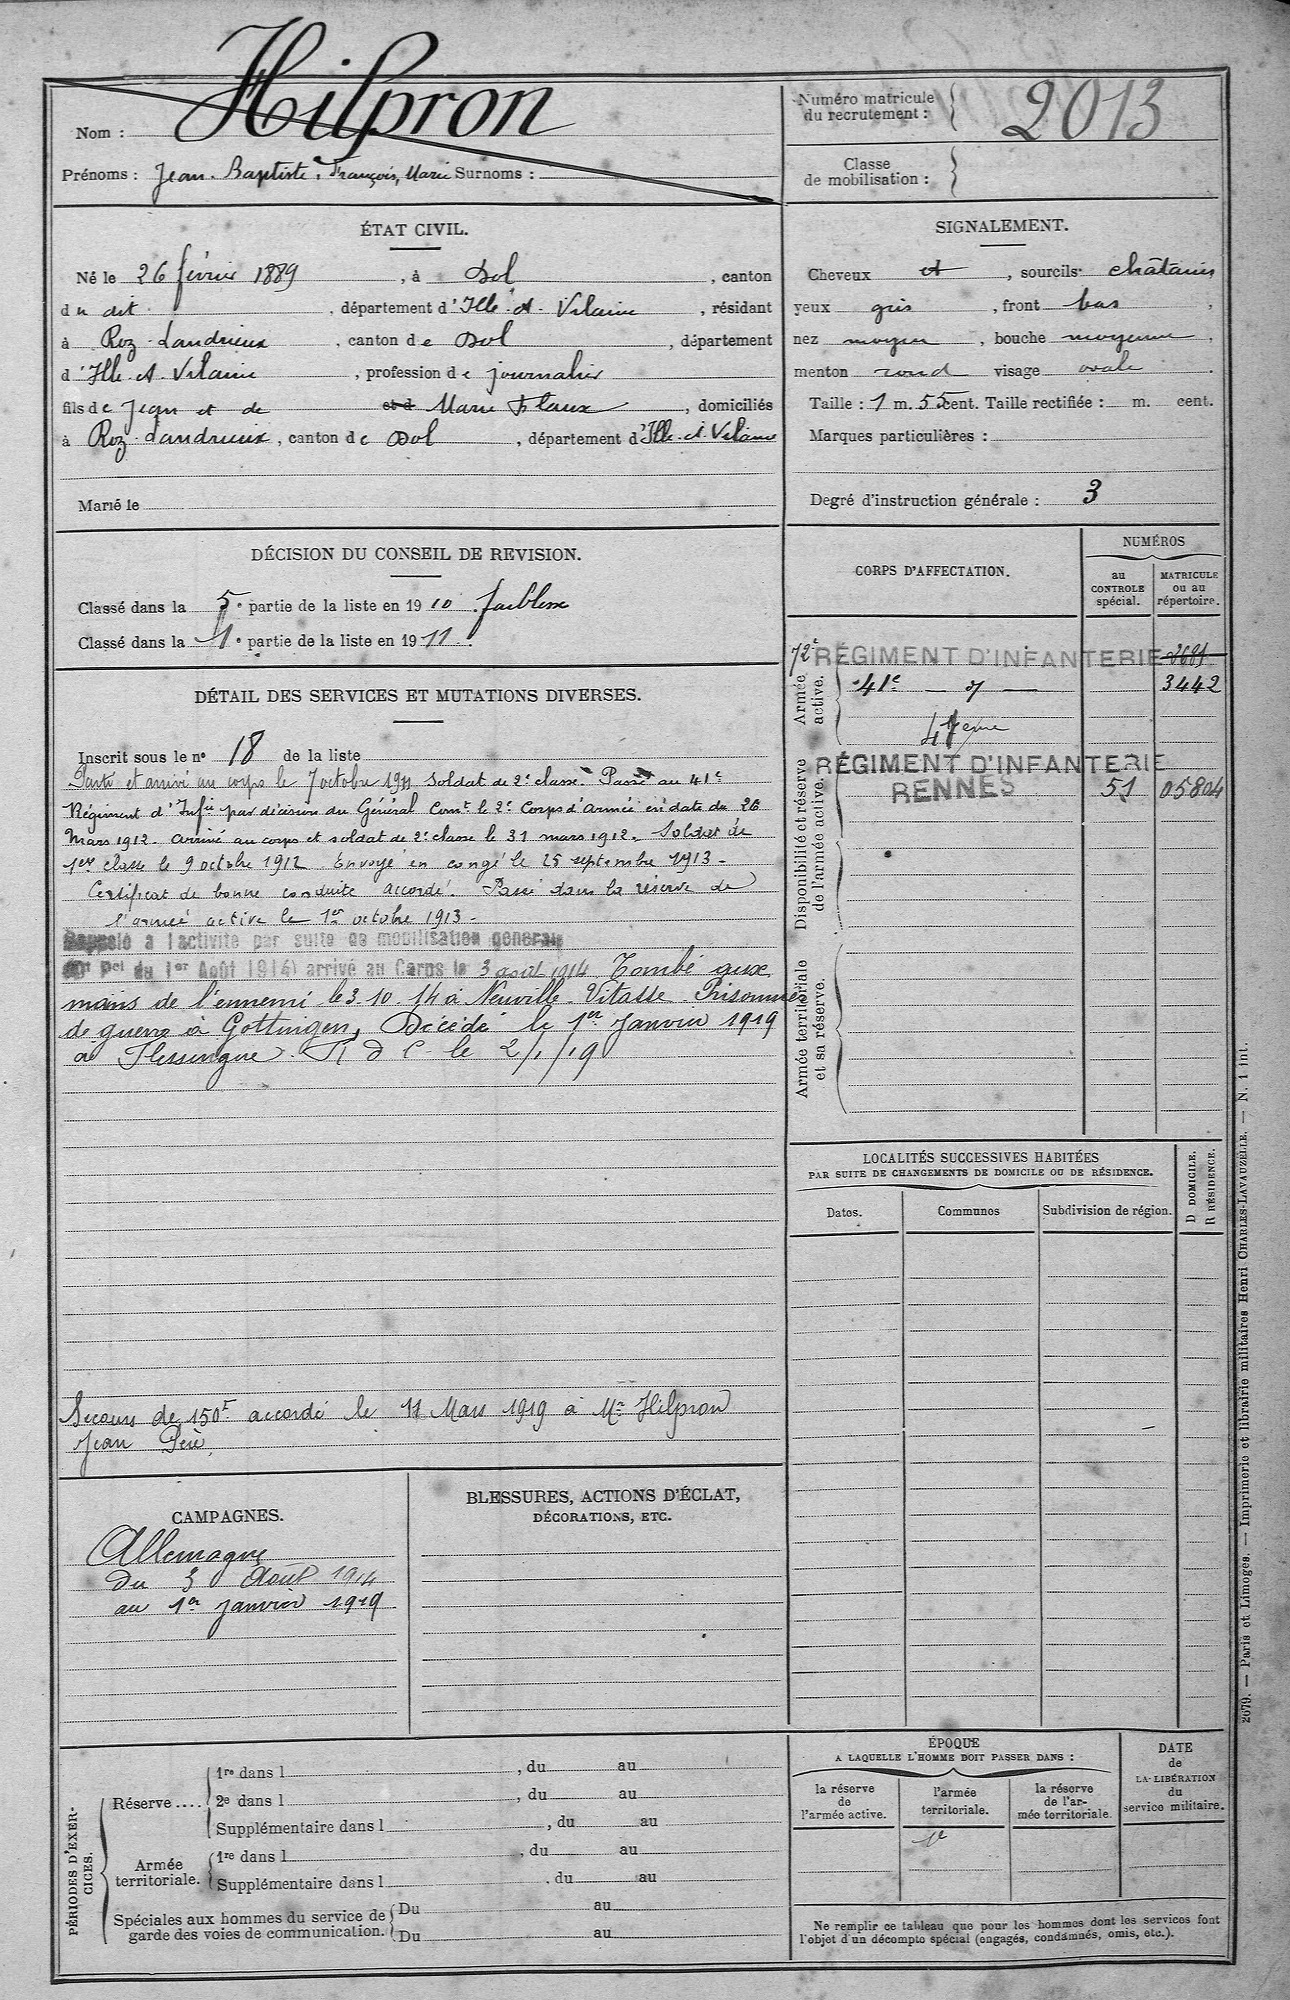 Nom : Hilpron
Prénoms : Jean-Baptiste, François, Marie Surnoms :
Numéro matricule
du recrutement : 2013
Classe
de mobilisation :
ÉTAT CIVIL.
Né le 26 février 1889, à Dol, canton
du dit, département d'Ille-et-Vilaine, résidant
à Roz-Landrieux, canton de Dol, département
d'Ille-et-Vilaine, profession de journalier
fils de Jean et de et d Marie Flaux, domiciliés
à Roz-Landrieux, canton de Dol, département d'Ille-et-Vilaine
Marié le
SIGNALEMENT.
Cheveux et, sourcils châtains
yeux gris, front bas,
nez moyen, bouche moyenne,
menton rond visage ovale.
Taille : 1 m. 55 cent. Taille rectifiée : m. cent.
Marques particulières :
Degré d'instruction générale : 3
DÉCISION DU CONSEIL DE REVISION.
Classé dans la 5e partie de la liste en 1910. faiblesse
Classé dans la 1e partie de la liste en 1911.
DÉTAIL DES SERVICES ET MUTATIONS DIVERSES.
Inscrit sous le no 18 de la liste
Parti et arrivé au corps le 7 octobre 1911 soldat de 2e classe. Passé au 41e
Régiment d'Infie par décision du Général Comt le 2e Corps d'Armée en date du 26
mars 1912. arrivé au corps et soldat de 2e classe le 31 mars 1912. Soldat de
1ere classe le 9 octobre 1912. Envoyé en congé le 25 septembre 1913 -
Certificat de bonne conduite accordé. Passé dans la réserve de
l'armée active le 1er octobre 1913 -
Rappelé à l'activité par suite de mobilisation générale
du 1er Août 1914) arrivé au Corps le 3 août 1914 Tombé aux
mains de l'ennemi le 3.10.14 à Neuville-Vitasse - Prisonnier
de guerre à Gottingen, Décédé le 1er Janvier 1919
à Flessingue. R d C. le 2/1/19
Secours de 150f accordé le 11 Mars 1919 à Mr Hilpron
Jean Père.
CORPS D'AFFECTATION.
NUMÉROS
au
CONTROLE
spécial.
MATRICULE
ou au
répertoire.
Armée
active.
72e RÉGIMENT D'INFANTERIE
41e - d - 3442
47eme
RÉGIMENT D'INFANTERIE
RENNES 51 05804
Disponibilité et réserve
de l'armée active.
Armée territoriale
et sa réserve.
LOCALITÉS SUCCESSIVES HABITÉES
PAR SUITE DE CHANGEMENTS DE DOMICILE OU DE RÉSIDENCE.
Dates.
Communes
Subdivision de région.
D DOMICILE.
R RÉSIDENCE.
CAMPAGNES.
Allemagne
du 3 Août 1914
au 1er janvier 1919
BLESSURES, ACTIONS D'ÉCLAT,
DÉCORATIONS, ETC.
PÉRIODES D'EXER-
CICES.
Réserve....
1re dans l, du au
2e dans l, du au
Supplémentaire dans l, du au
Armée
territoriale.
1re dans l, du au
Supplémentaire dans l, du au
Spéciales aux hommes du service de
garde des voies de communication.
Du au
Du au
ÉPOQUE
A LAQUELLE L'HOMME DOIT PASSER DANS :
la réserve
de
l'armée active.
l'armée
territoriale.
la réserve
de l'ar-
mée territoriale.
DATE
de
LA LIBÉRATION
du
service militaire.
Ne remplir ce tableau que pour les hommes dont les services font
l'objet d'un décompte spécial (engagés, condamnés, omis, etc.).
2679. — Paris et Limoges. — Imprimerie et librairie militaires Henri CHARLES-LAVAUZELLE. — N. 1 int.